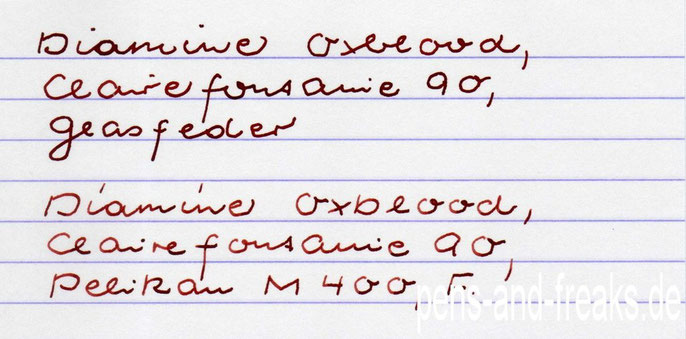 Diamine Oxblood,
Clairefontanie 90,
Glasfeder
Diamine Oxblood,
Clairefontanie 90,
Pelikan M 400, F.
pens-and-freaks.de